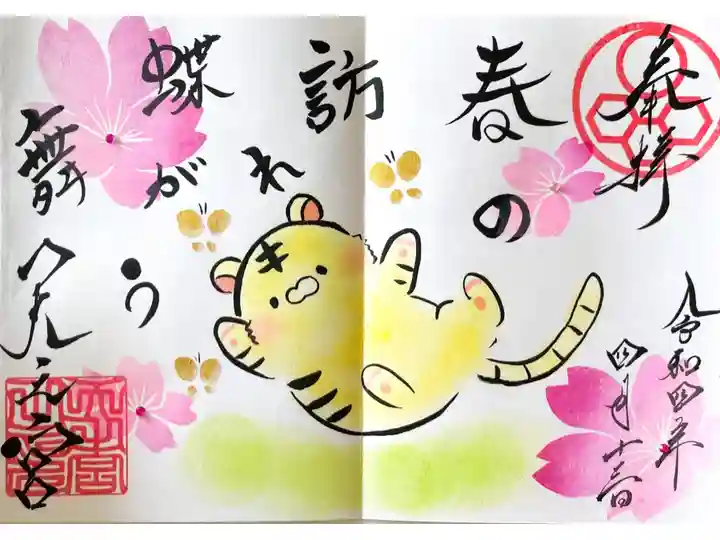 奉拝
令和四年
四月十三日
春の
訪れ
蝶が
舞う